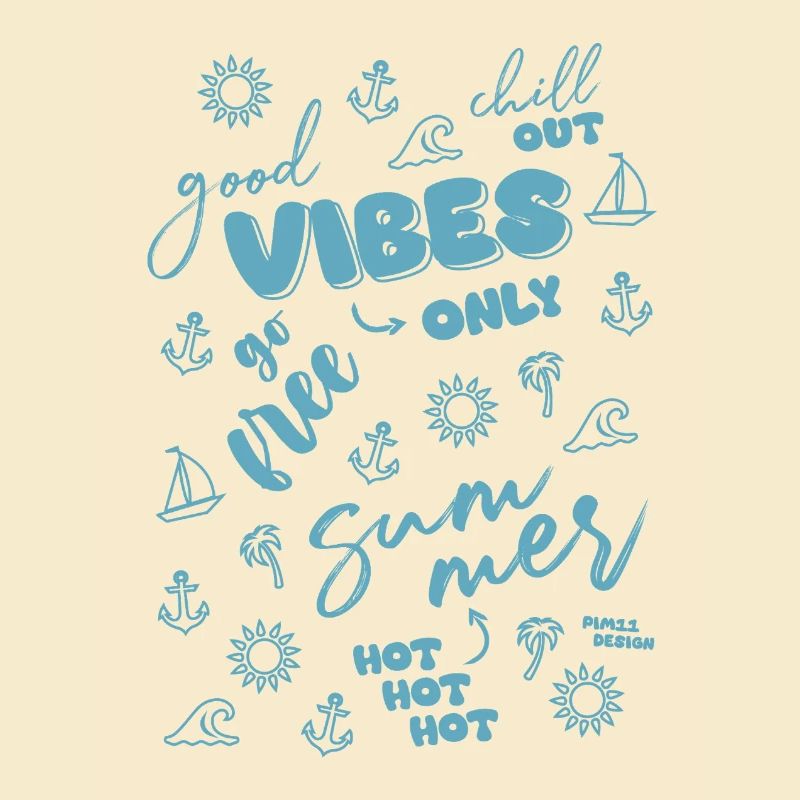 chill
OUT
good
VIBES
ONLY
go
free
sum
mer
PIM11
DESIGN
HOT
HOT
HOT